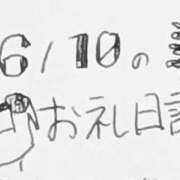 6/10の
お礼日記